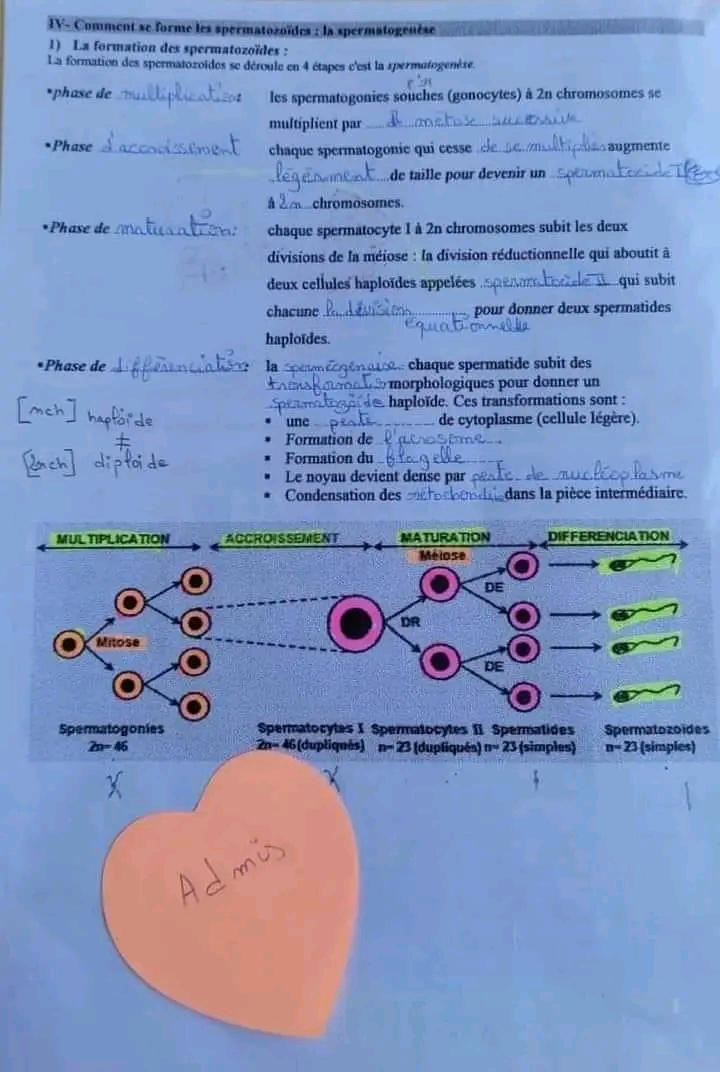 IV- Comment se forme les spermatozoïdes : la spermatogenèse
1) La formation des spermatozoïdes :
La formation des spermatozoïdes se déroule en 4 étapes c'est la spermatogenèse.
•phase de multiplication: les spermatogonies souches (gonocytes) à 2n chromosomes se
multiplient par de metose successive
•Phase d'accroissement chaque spermatogonie qui cesse de se multiplier augmente
légèrement de taille pour devenir un spermatocide I
à 2n chromosomes.
•Phase de maturation: chaque spermatocyte I à 2n chromosomes subit les deux
divisions de la méiose : la division réductionnelle qui aboutit à
deux cellules haploïdes appelées spermatocide II qui subit
chacune la dévision pour donner deux spermatides
équationnelle
haploïdes.
•Phase de différenciation: la chaque spermatide subit des
morphologiques pour donner un
spermatozoïde haploïde. Ces transformations sont :
[nch] haploïde
≠
[2nch] diploïde
▪ une perte de cytoplasme (cellule légère).
▪ Formation de l'acrosome
▪ Formation du flagelle
▪ Le noyau devient dense par perte de nucléoplasme
▪ Condensation des dans la pièce intermédiaire.
MULTIPLICATION ACCROISSEMENT MATURATION DIFFERENCIATION
Méiose
DE
Mitose DR
DE
Spermatogonies Spermatocytes I Spermatocytes II Spermatides Spermatozoïdes
2n= 46 2n= 46 (dupliqués) n= 23 (dupliqués) n= 23 (simples) n= 23 (simples)
Admis